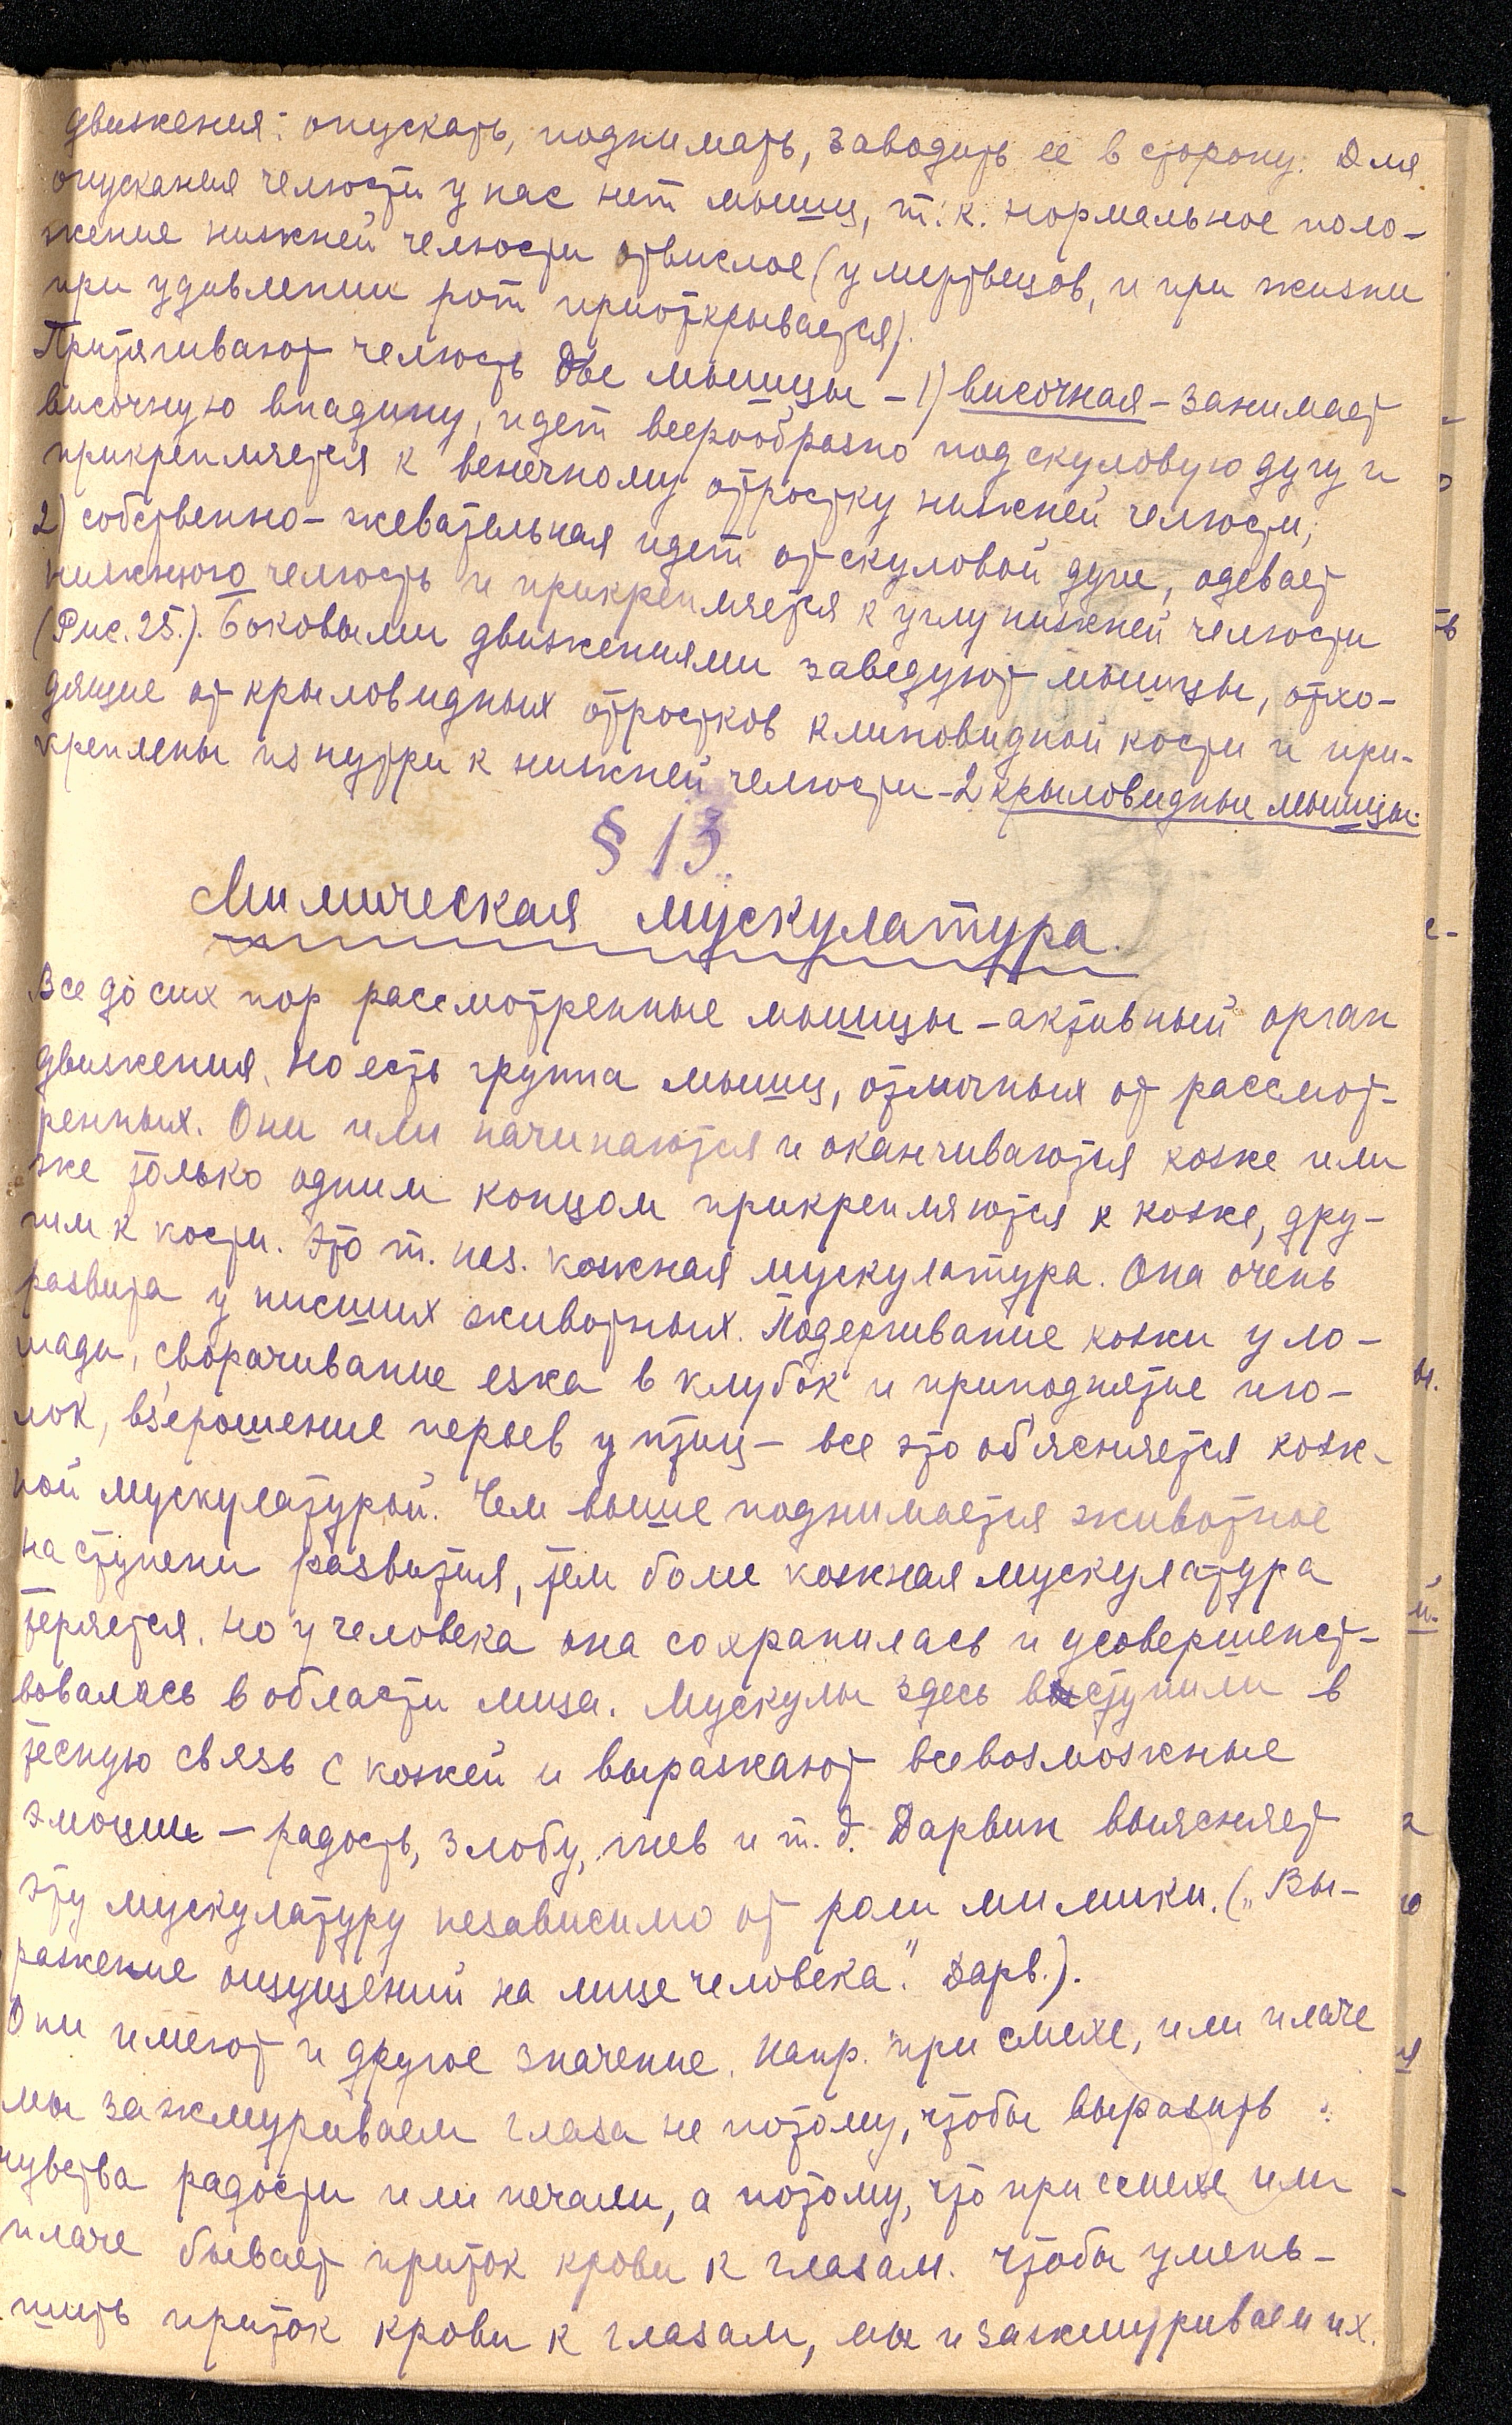 движения: опускать, поднимать, заводить ее в сторону. Для
опускания челюсти у нас нет мышц, т. к. нормальное поло-
жение нижней челюсти отвислое (у мертвецов, и при жизни
при удивлении рот приоткрывается).
Притягивают челюсть две мышцы – 1) височная – занимает
височную впадину, идет веерообразно под скуловую дугу и
прикрепляется к венечному отростку нижней челюсти;
2) собственно-жевательная идет от скуловой дуги, одевает
нижнюю челюсть и прикрепляется к углу нижней челюсти
(Рис. 25.). Боковыми движениями заведуют мышцы, отхо-
дящие от крыловидных отростков клиновидной кости и при-
креплены изнутри к нижней челюсти – 2 крыловидные мышцы.
§ 13.
Мимическая мускулатура.
Все до сих пор рассмотренные мышцы – активный орган
движения. Но есть группа мышц, отличных от рассмот-
ренных. Они или начинаются и оканчиваются коже или
же только одним концом прикрепляются к коже, дру-
гим к кости. Это т. наз. кожная мускулатура. Она очень
развита у низших животных. Подергивание кожи у ло-
шади, сворачивание ежа в клубок и приподнятие иго-
лок, вз'ерошение перьев у птиц – все это об'ясняется кож-
ной мускулатурой. Чем выше поднимается животное
на ступени развития, тем боле кожная мускулатура
теряется. Но у человека она сохранилась и усовершенст-
вовалась в области лица. Мускулы здесь вступили в
тесную связь с кожей и выражают всевозможные
эмоции – радость, злобу, гнев и т. д. Дарвин выясняет
эту мускулатуру независимо от роли мимики. („Вы-
ражение ощущений на лице человека." Дарв.).
Они имеют и другое значение. Напр. при смехе, или плаче
мы зажмуриваем глаза не потому, чтобы выразить
чувства радости или печали, а потому, что при смехе или
плаче бывает приток крови к глазам. Чтобы умень-
шить приток крови к глазам, мы и зажмуриваем их.